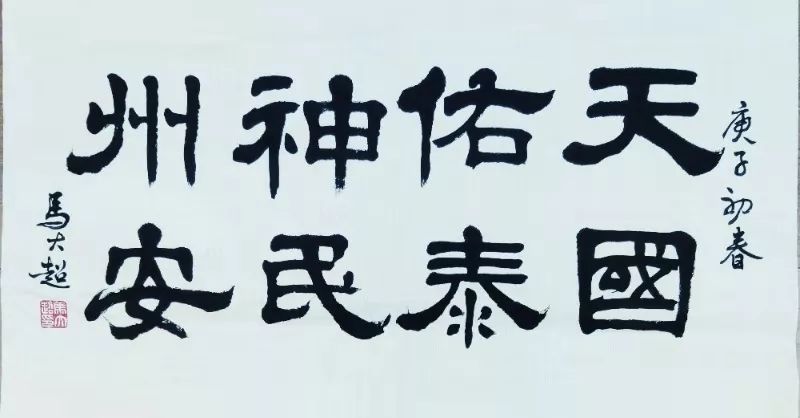 庚子初春
天佑神州
國泰民安
馬大超